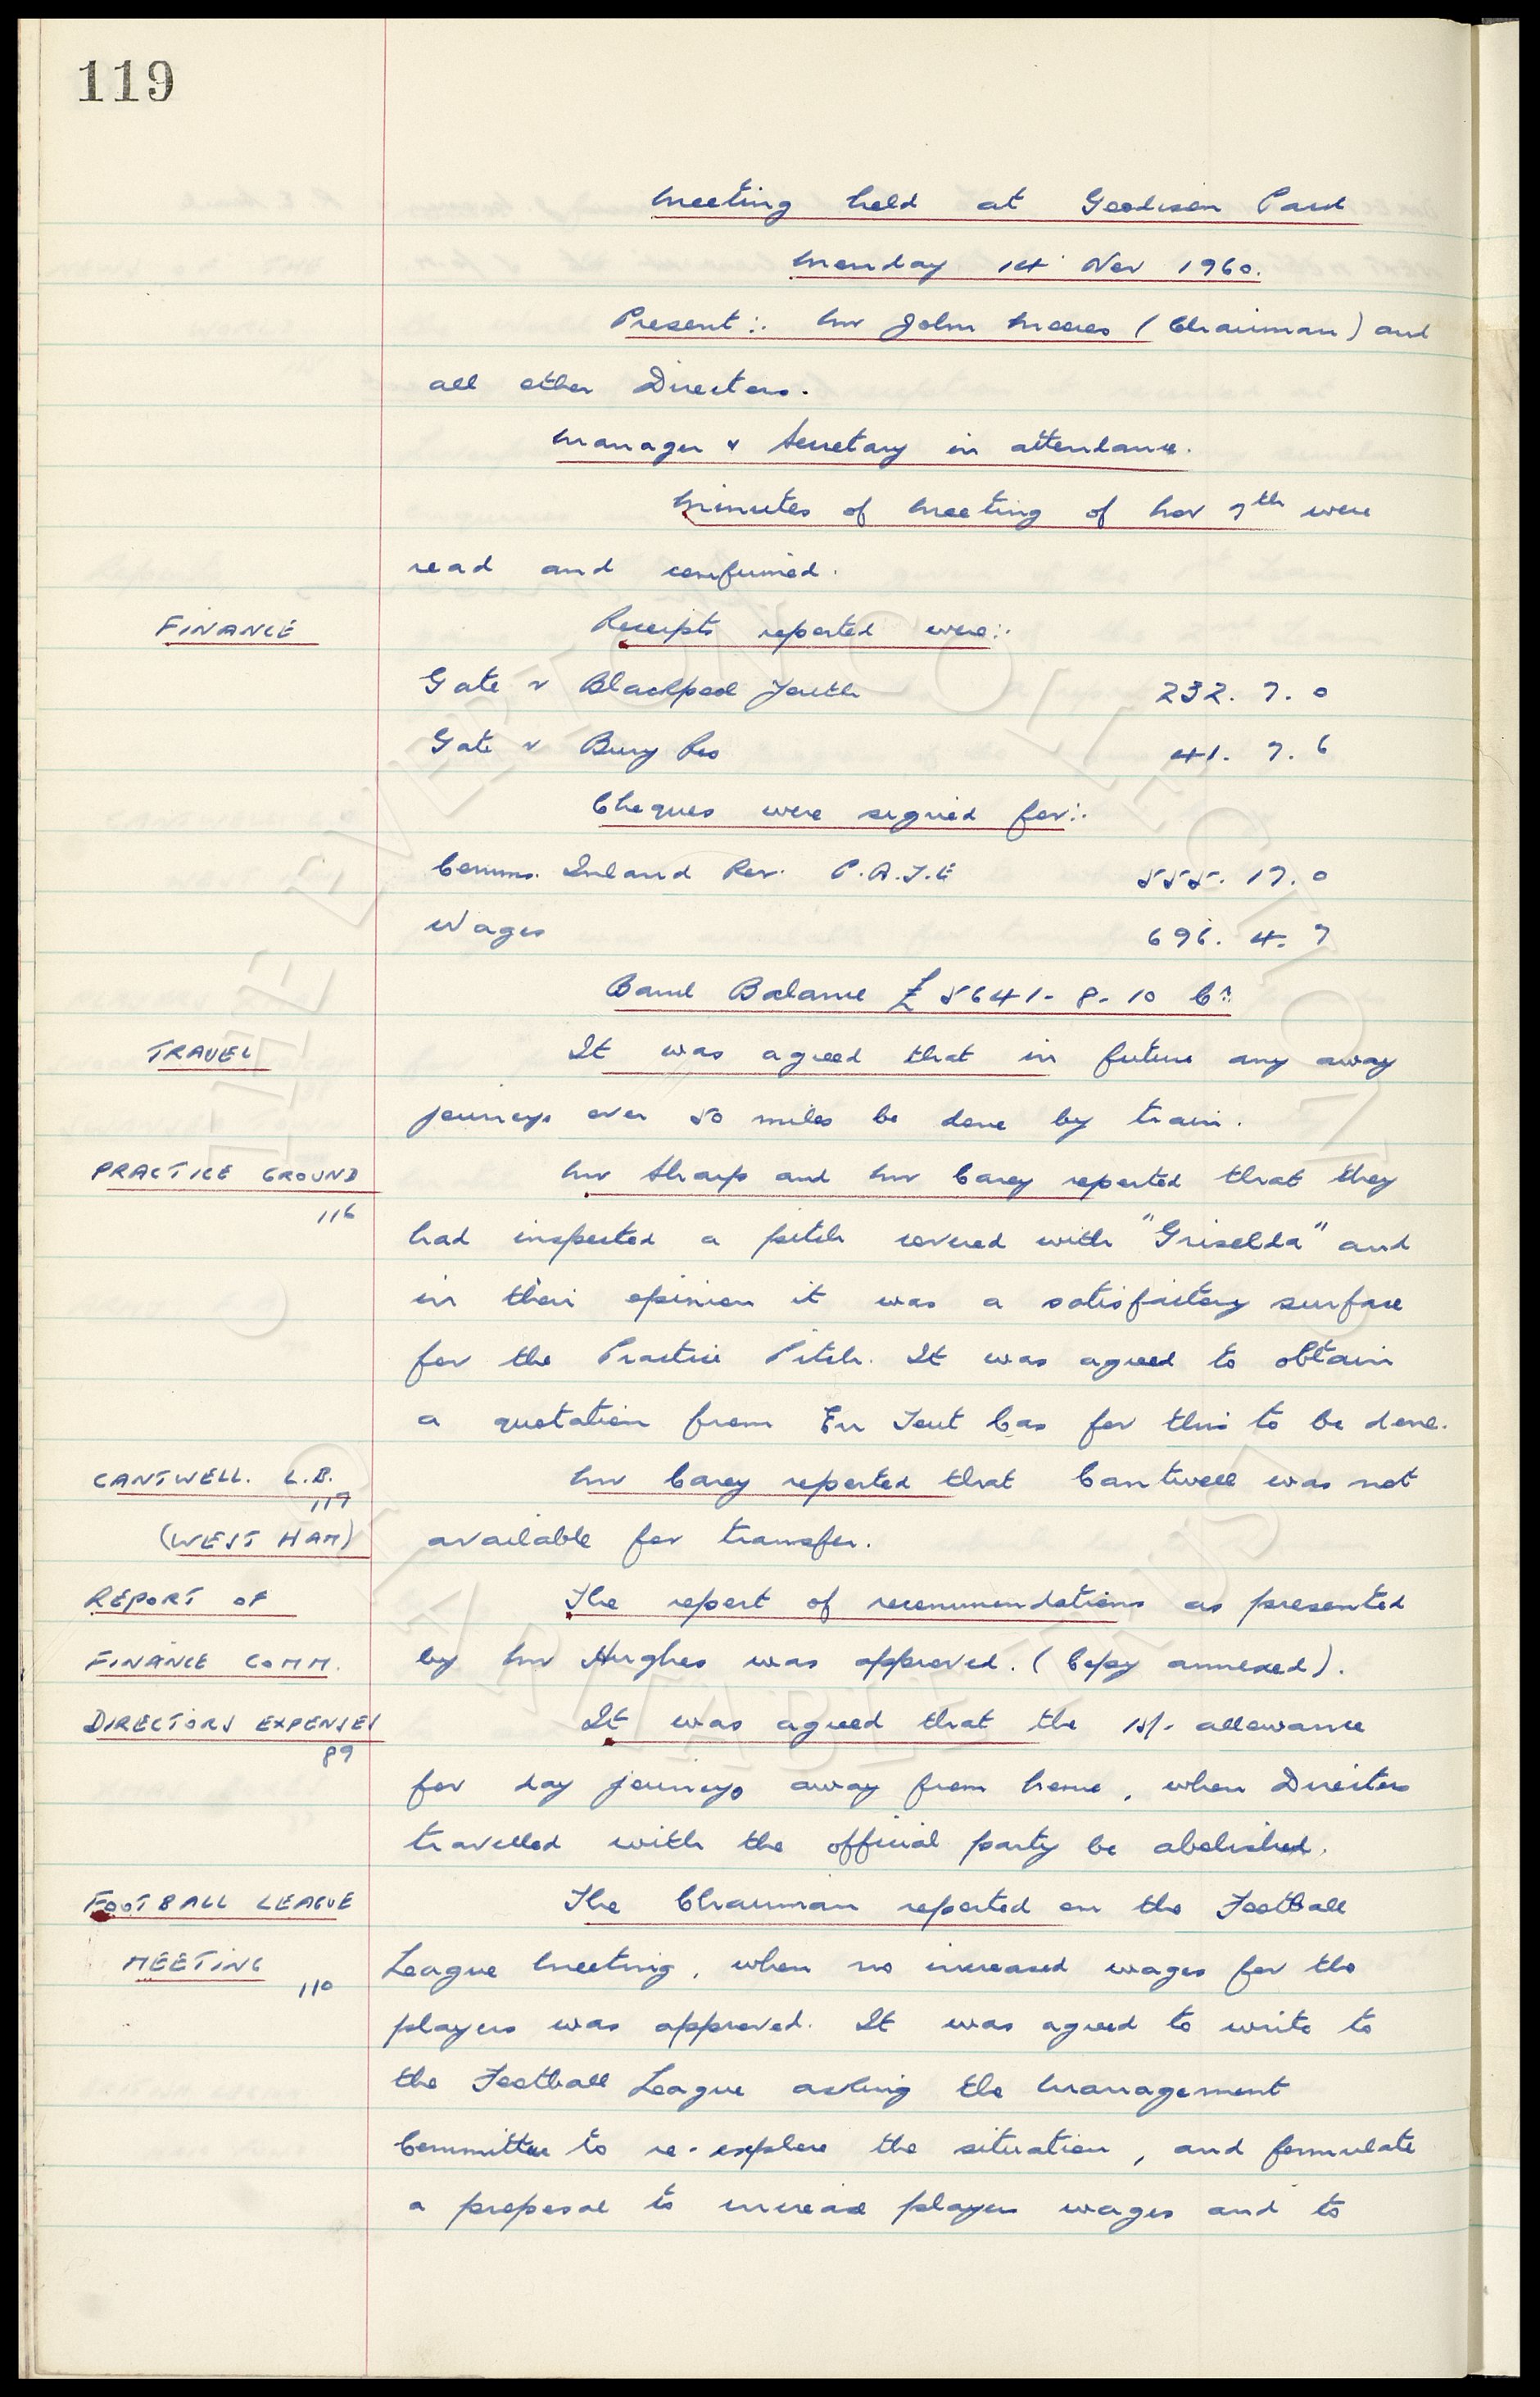 119
Meeting held at Goodison Park
Monday 14 Nov 1960.
Present:. Mr John Moores (Chairman) and
all other Directors.
Manager & Secretary in attendance.
Minutes of Meeting of Nov 7th were
read and confirmed.
FINANCE Receipts reported were:.
Gate v Blackpool Youth 232. 7. 0
Gate v Bury Res 41. 7. 6
Cheques were signed for:.
Comms. Inland Rev. P.A.Y.E 555. 17. 0
Wages 696. 4. 7
Bank Balance £5641-8-10 Cr
TRAVEL It was agreed that in future any away
journeys over 50 miles be done by train.
PRACTICE GROUND Mr Sharp and Mr Carey reported that they
116
had inspected a pitch covered with "Griselda" and
in their opinion it was a satisfactory surface
for the Practice Pitch. It was agreed to obtain
a quotation from En Tout Cas for this to be done.
CANTWELL. L.B. Mr Carey reported that Cantwell was not
117
(WEST HAM) available for transfer.
REPORT OF The report of recommendations as presented
FINANCE COMM. by Mr Hughes was approved. (Copy annexed).
DIRECTORS EXPENSES It was agreed that the 15/- allowance
89
for day journeys away from home, when Directors
travelled with the official party be abolished.
FOOTBALL LEAGUE The Chairman reported on the Football
MEETING League Meeting, when no increased wages for the
110
players was approved. It was agreed to write to
the Football League asking the Management
Committee to re-explore the situation, and formulate
a proposal to increase players wages and to